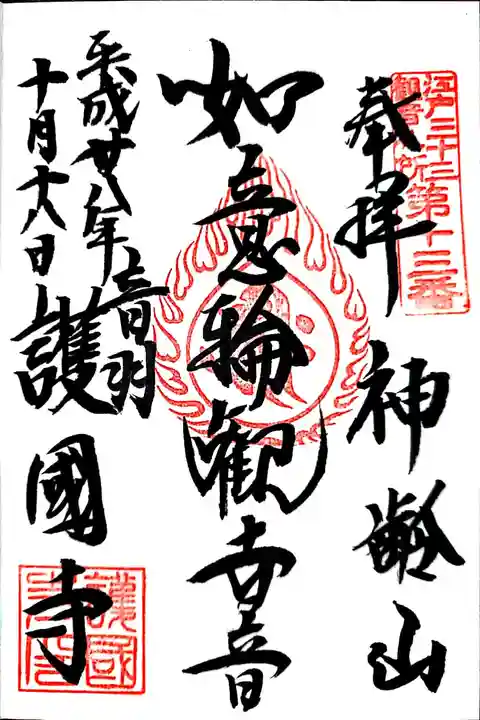 奉拝
江戸三十三
観音札所第十三番
神齢山
如意輪観世音
平成廿八年
十月十八日
音羽
護國寺